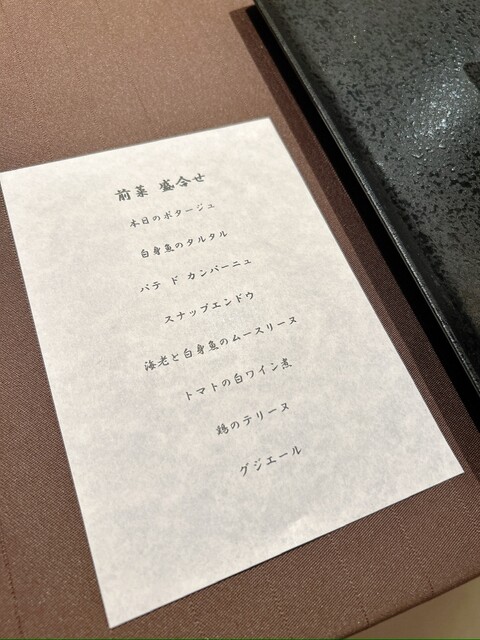 前菜 盛合せ
本日のポタージュ
白身魚のタルタル
パテ ド カンパーニュ
スナップエンドウ
海老と白身魚のムースリーヌ
トマトの白ワイン煮
鶏のテリーヌ
グジエール